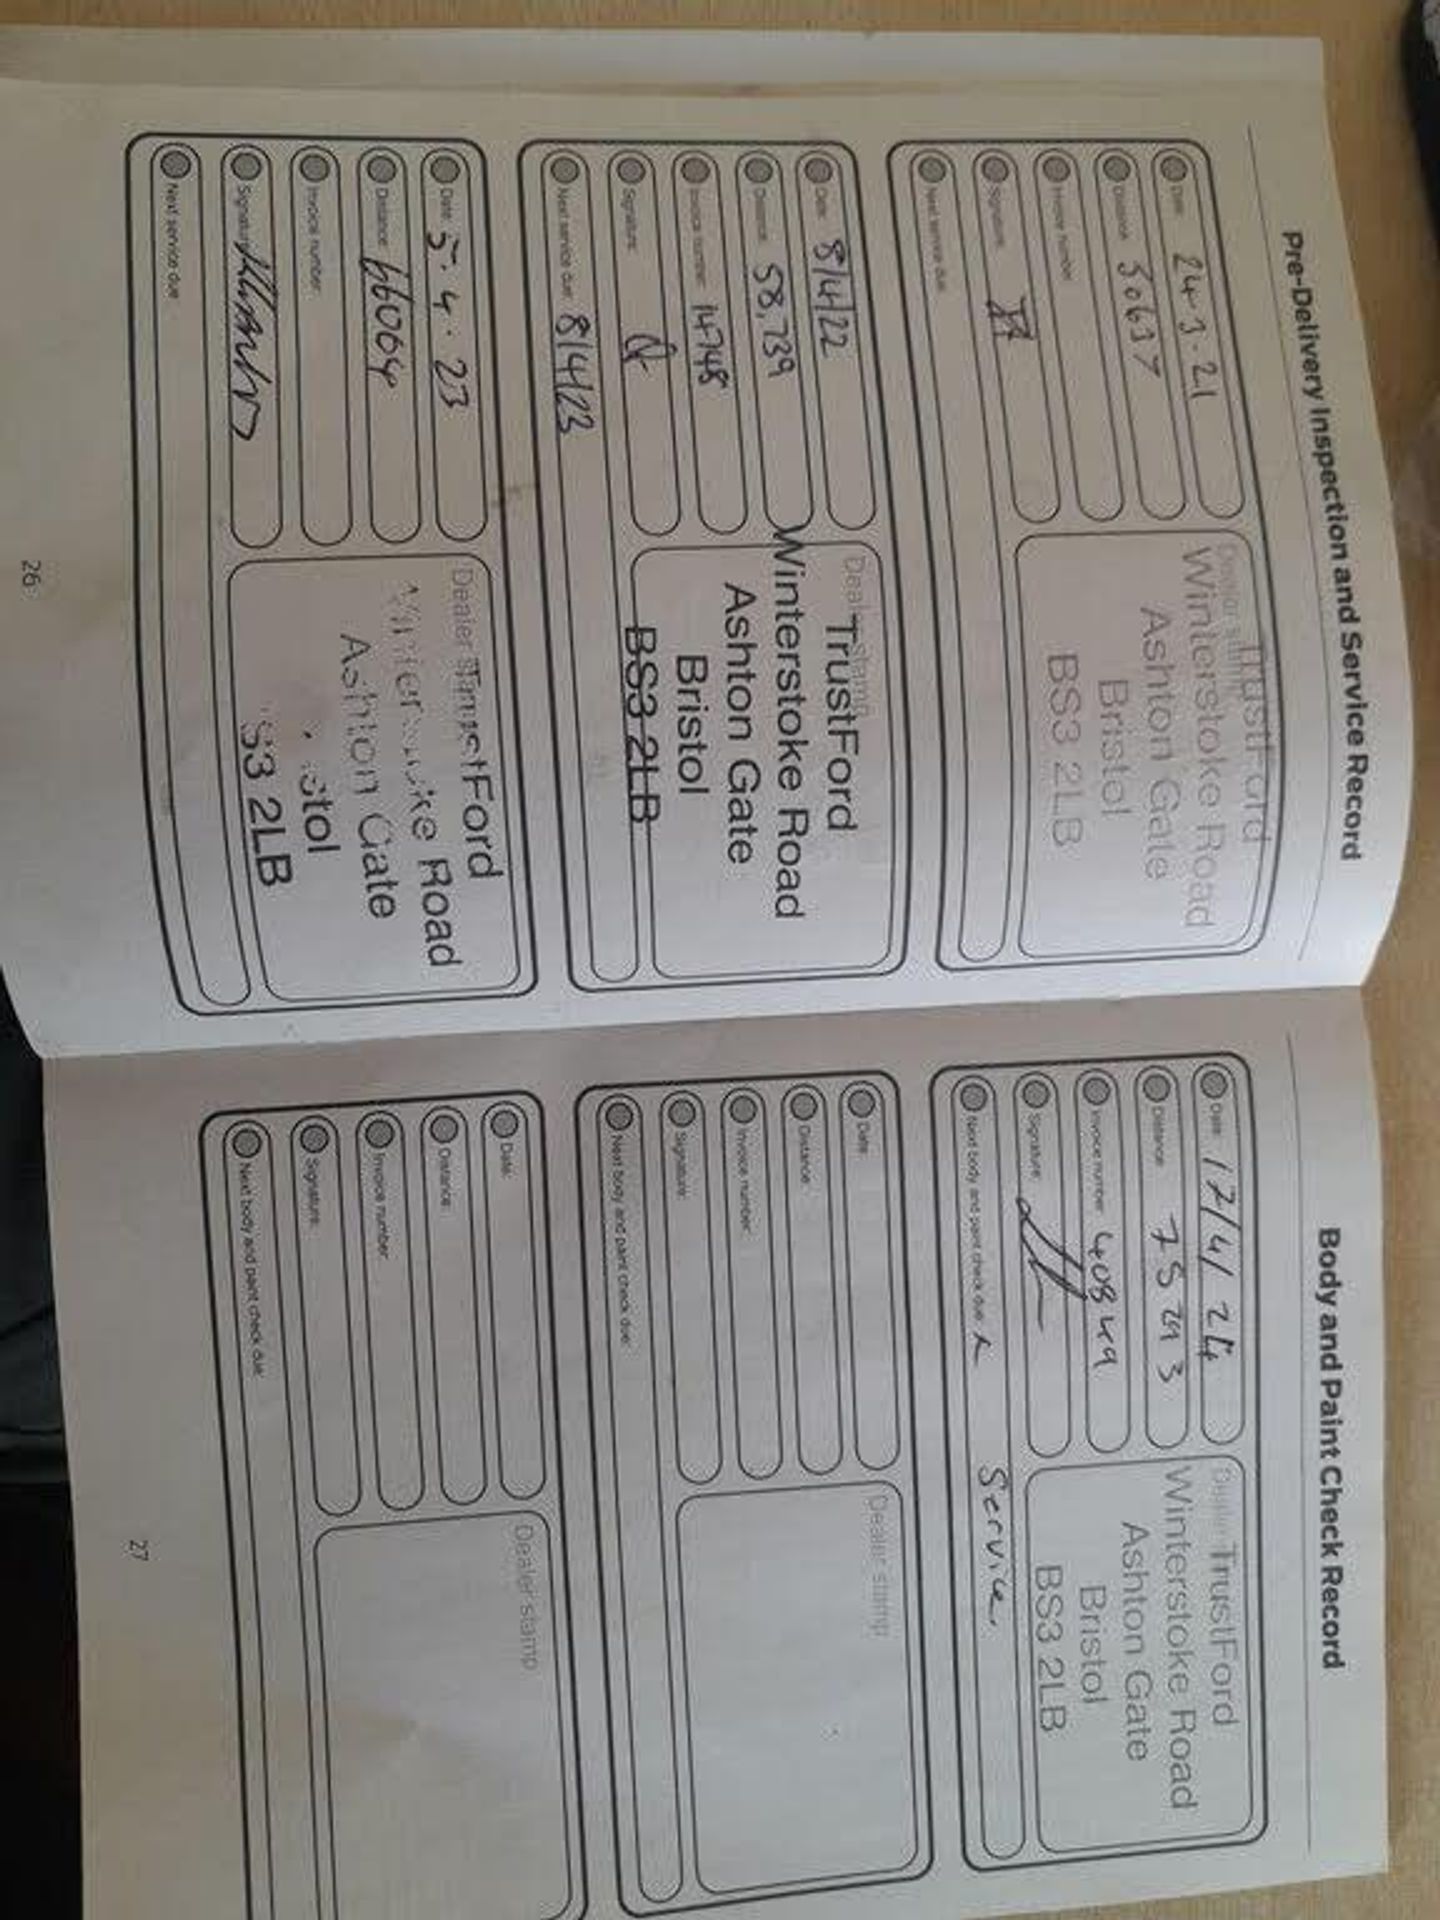 Pre-Delivery Inspection and Service Record
Date: 24-3-21
Distance: 30637
Invoice number:
Signature:
Next service due:
Dealer stamp
TrustFord
Winterstoke Road
Ashton Gate
Bristol
BS3 2LB
Date: 8/4/22
Distance: 58,739
Invoice number: 14748
Signature:
Next service due: 8/4/23
Dealer stamp
TrustFord
Winterstoke Road
Ashton Gate
Bristol
BS3 2LB
Date: 5.4.23
Distance: 66064
Invoice number:
Signature:
Next service due:
Dealer stamp
TrustFord
Winterstoke Road
Ashton Gate
stol
S3 2LB
26
Body and Paint Check Record
Date: 17/4/24
Distance:
Invoice number:
Signature:
Next body and paint check due: Service.
Dealer
TrustFord
Winterstoke Road
Ashton Gate
Bristol
BS3 2LB
Date:
Distance:
Invoice number:
Signature:
Next body and paint check due:
Dealer stamp
Date:
Distance:
Invoice number:
Signature:
Next body and paint check due:
Dealer stamp
27